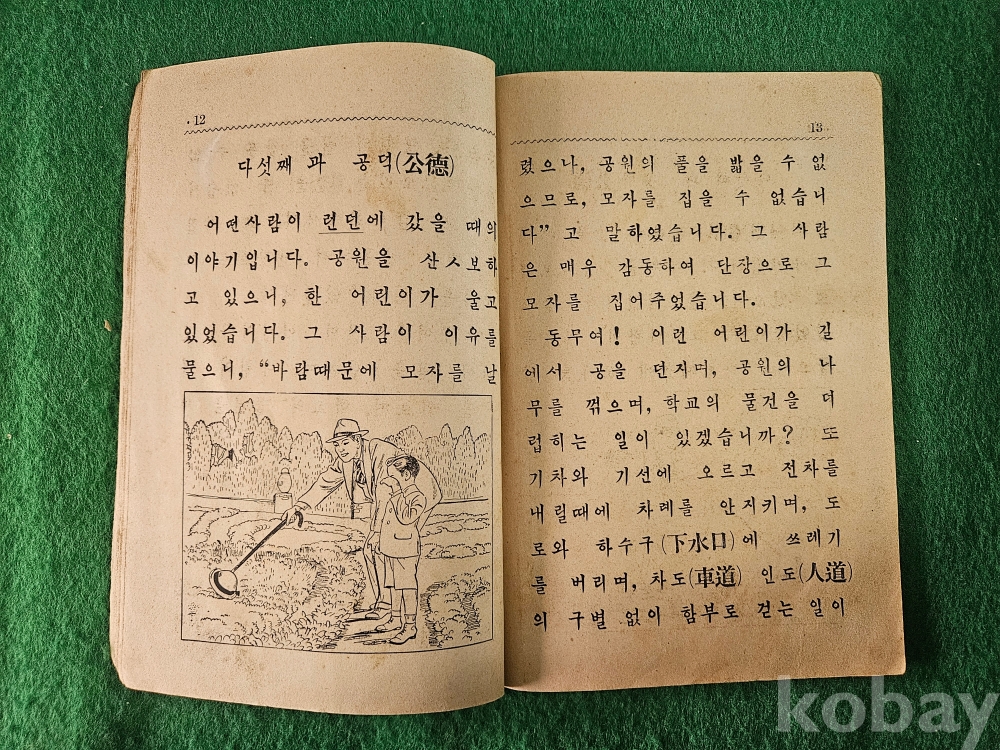 12
다섯째 과 공덕(公德)
어떤사람이 런던에 갔을 때의
이야기입니다. 공원을 산ㅅ보하
고 있으니, 한 어린이가 울고
있었습니다. 그 사람이 이유를
물으니, “바람때문에 모자를 날
13
렸으나, 공원의 풀을 밟을 수 없
으므로, 모자를 집을 수 없습니
다” 고 말하였습니다. 그 사람
은 매우 감동하여 단장으로 그
모자를 집어주었습니다.
동무여! 이런 어린이가 길
에서 공을 던지며, 공원의 나
무를 꺾으며, 학교의 물건을 더
럽히는 일이 있겠습니까? 또
기차와 기선에 오르고 전차를
내릴때에 차례를 안지키며, 도
로와 하수구(下水口)에 쓰레기
를 버리며, 차도(車道) 인도(人道)
의 구별 없이 함부로 걷는 일이
kobay